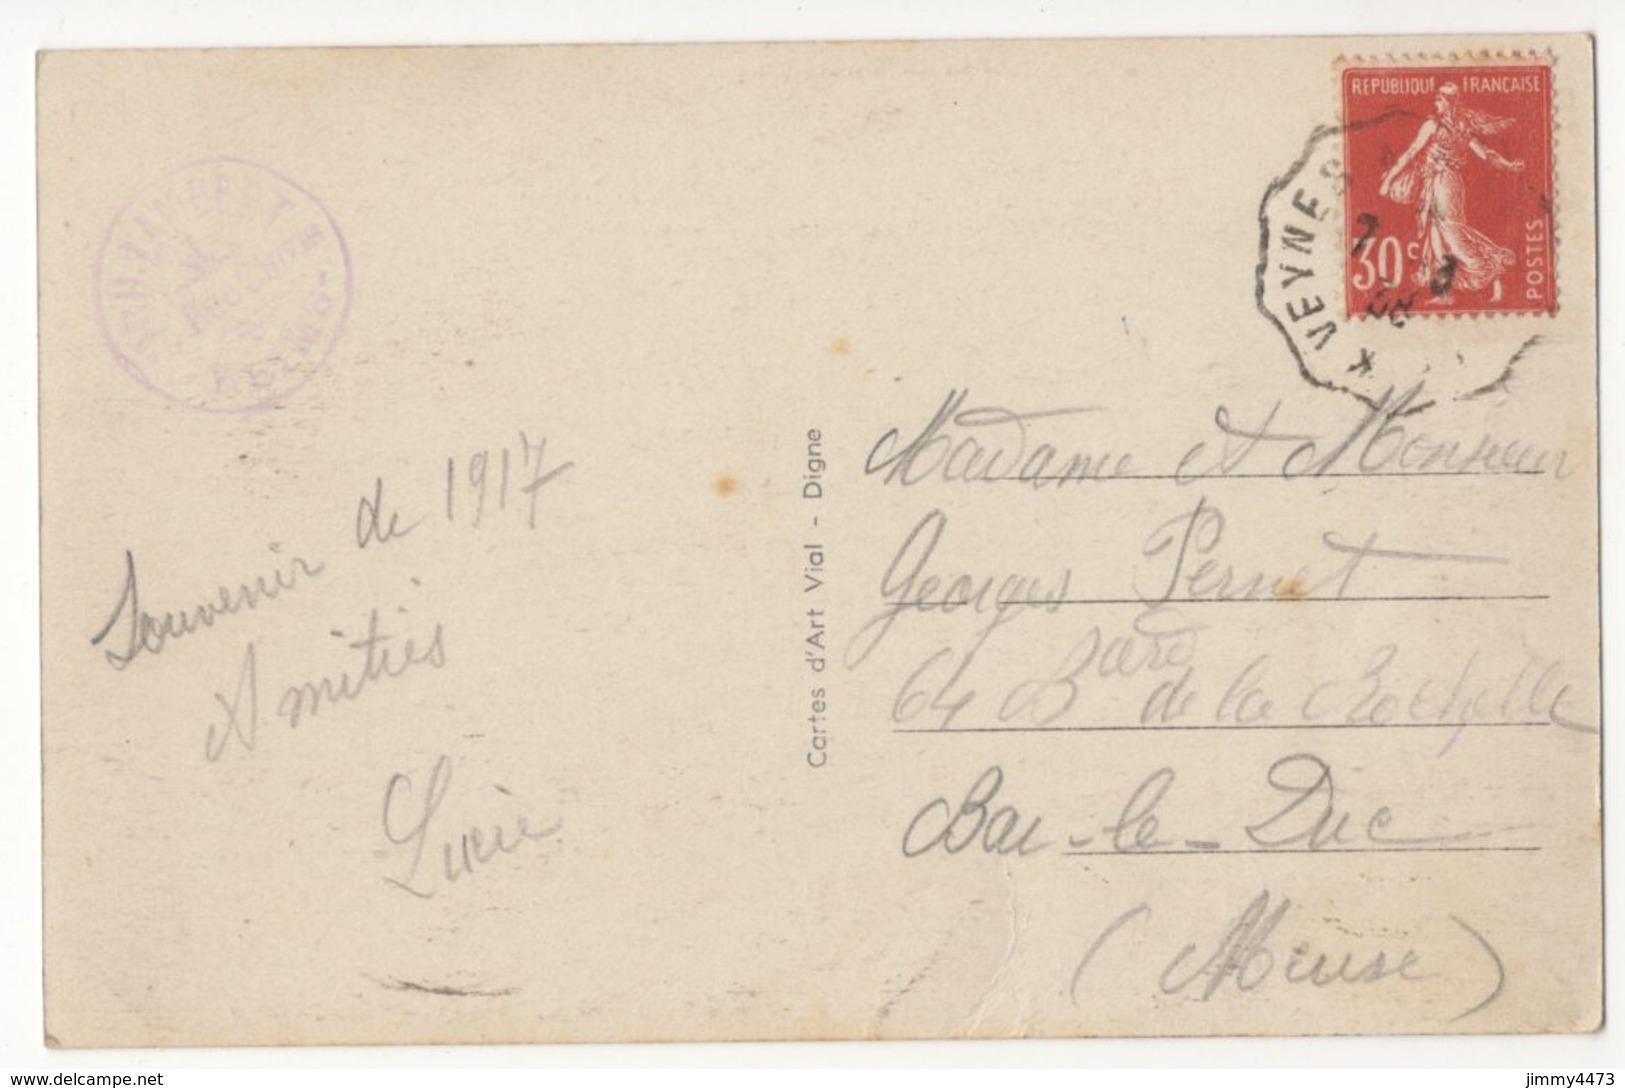 RÉPUBLIQUE FRANÇAISE
30c
POSTES
VEYNES
7
Souvenir de 1917
Amitiés
Lucie
Cartes d'Art Vial - Digne
Madame et Monsieur
Georges Pernet
64 Bard de la Rochelle
Bar-le-Duc
(Meuse)
www.delcampe.net
jimmy4473